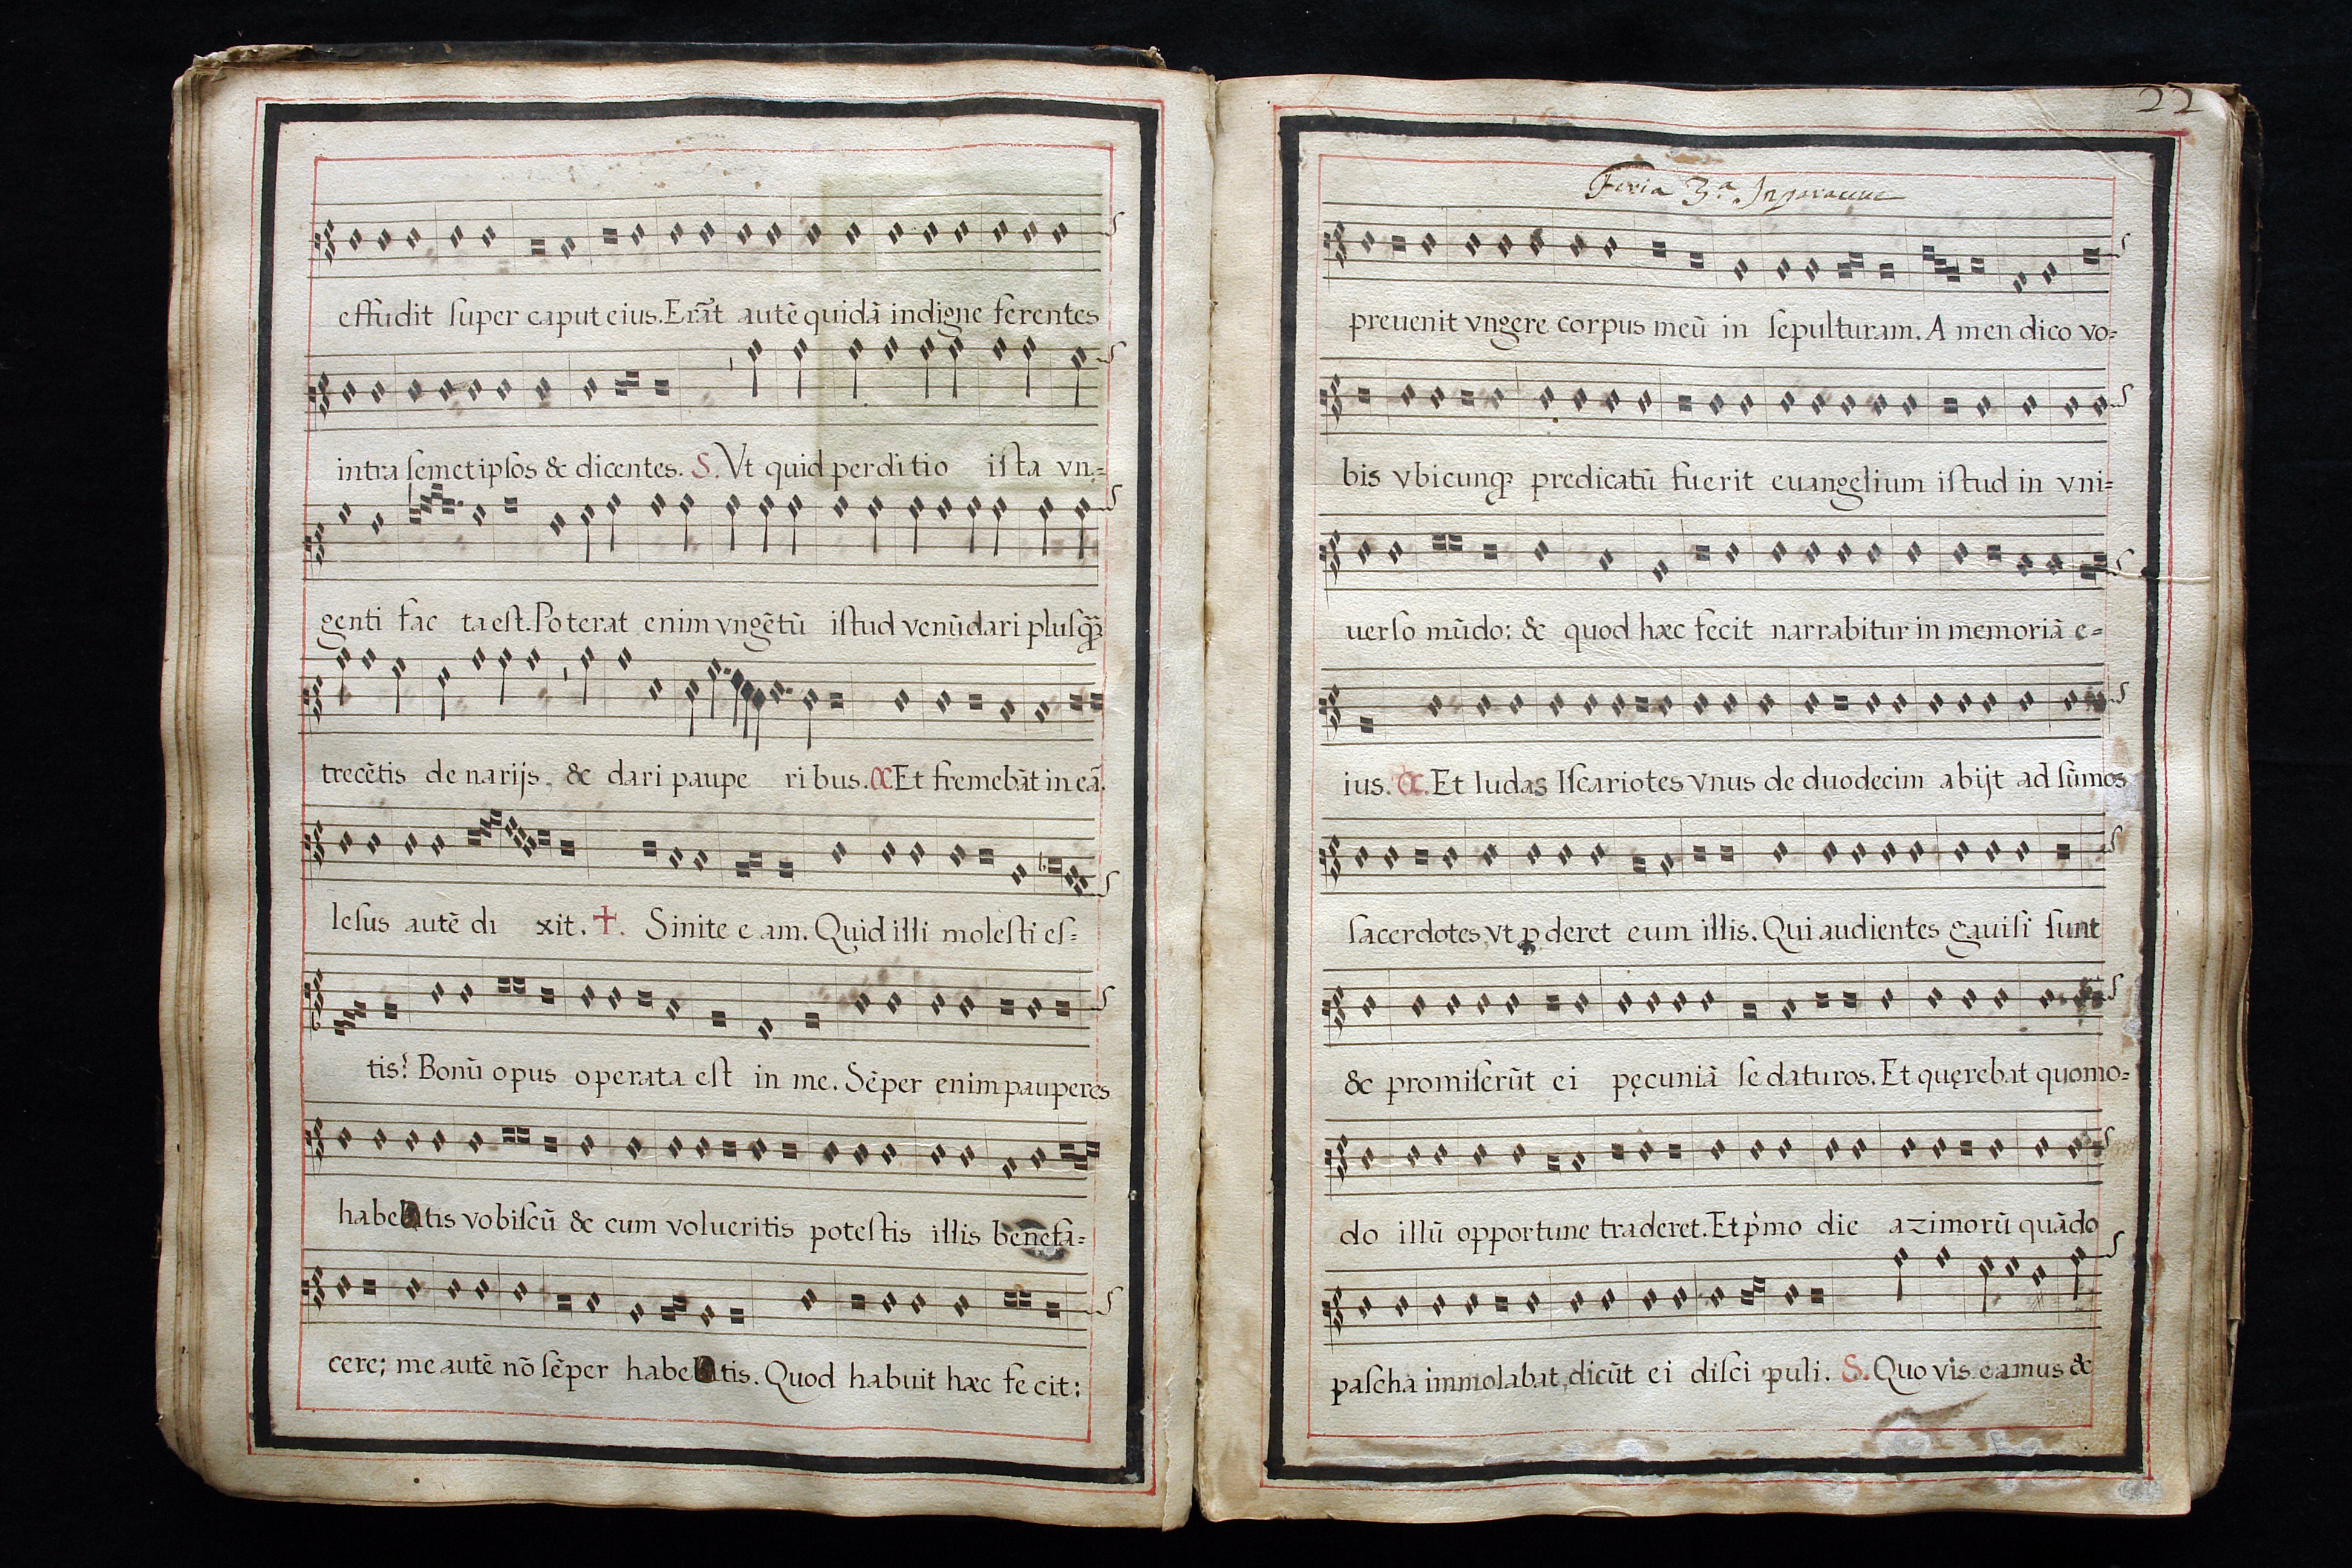 effudit ſuper caput eius. Erãt autẽ quidã indigne ferentes
intra ſemetipſos & dicentes. S. Vt quid perditio iſta vn=
genti fac ta eſt. Poterat enim vngẽtũ iſtud venũdari pluſq̃
trecẽtis de narijs, & dari paupe ri bus. C. Et fremebãt in eã.
Ieſus autẽ di xit. +. Sinite e am. Quid illi moleſti eſ=
tis? Bonũ opus operata eſt in me. Sẽper enim pauperes
habebitis vobiſcũ & cum volueritis poteſtis illis benefa=
cere; me autẽ nõ ſẽper habebitis. Quod habuit hæc fe cit:
22
Feria 3.ª
preuenit vngere corpus meũ in ſepulturam. A men dico vo=
bis vbicunq; predicatũ fuerit euangelium iſtud in vni=
uerſo mũdo: & quod hæc fecit narrabitur in memoriã e=
ius. C. Et Iudas Iſcariotes vnus de duodecim abijt ad ſũmos
ſacerdotes, vt ꝓderet eum illis. Qui audientes gauiſi ſunt
& promiſerũt ei pęcuniã ſe daturos. Et quęrebat quomo=
do illũ opportune traderet. Et p̓mo die azimorũ quãdo
paſcha immolabat, dicũt ei diſci puli. S. Quo vis eamus &